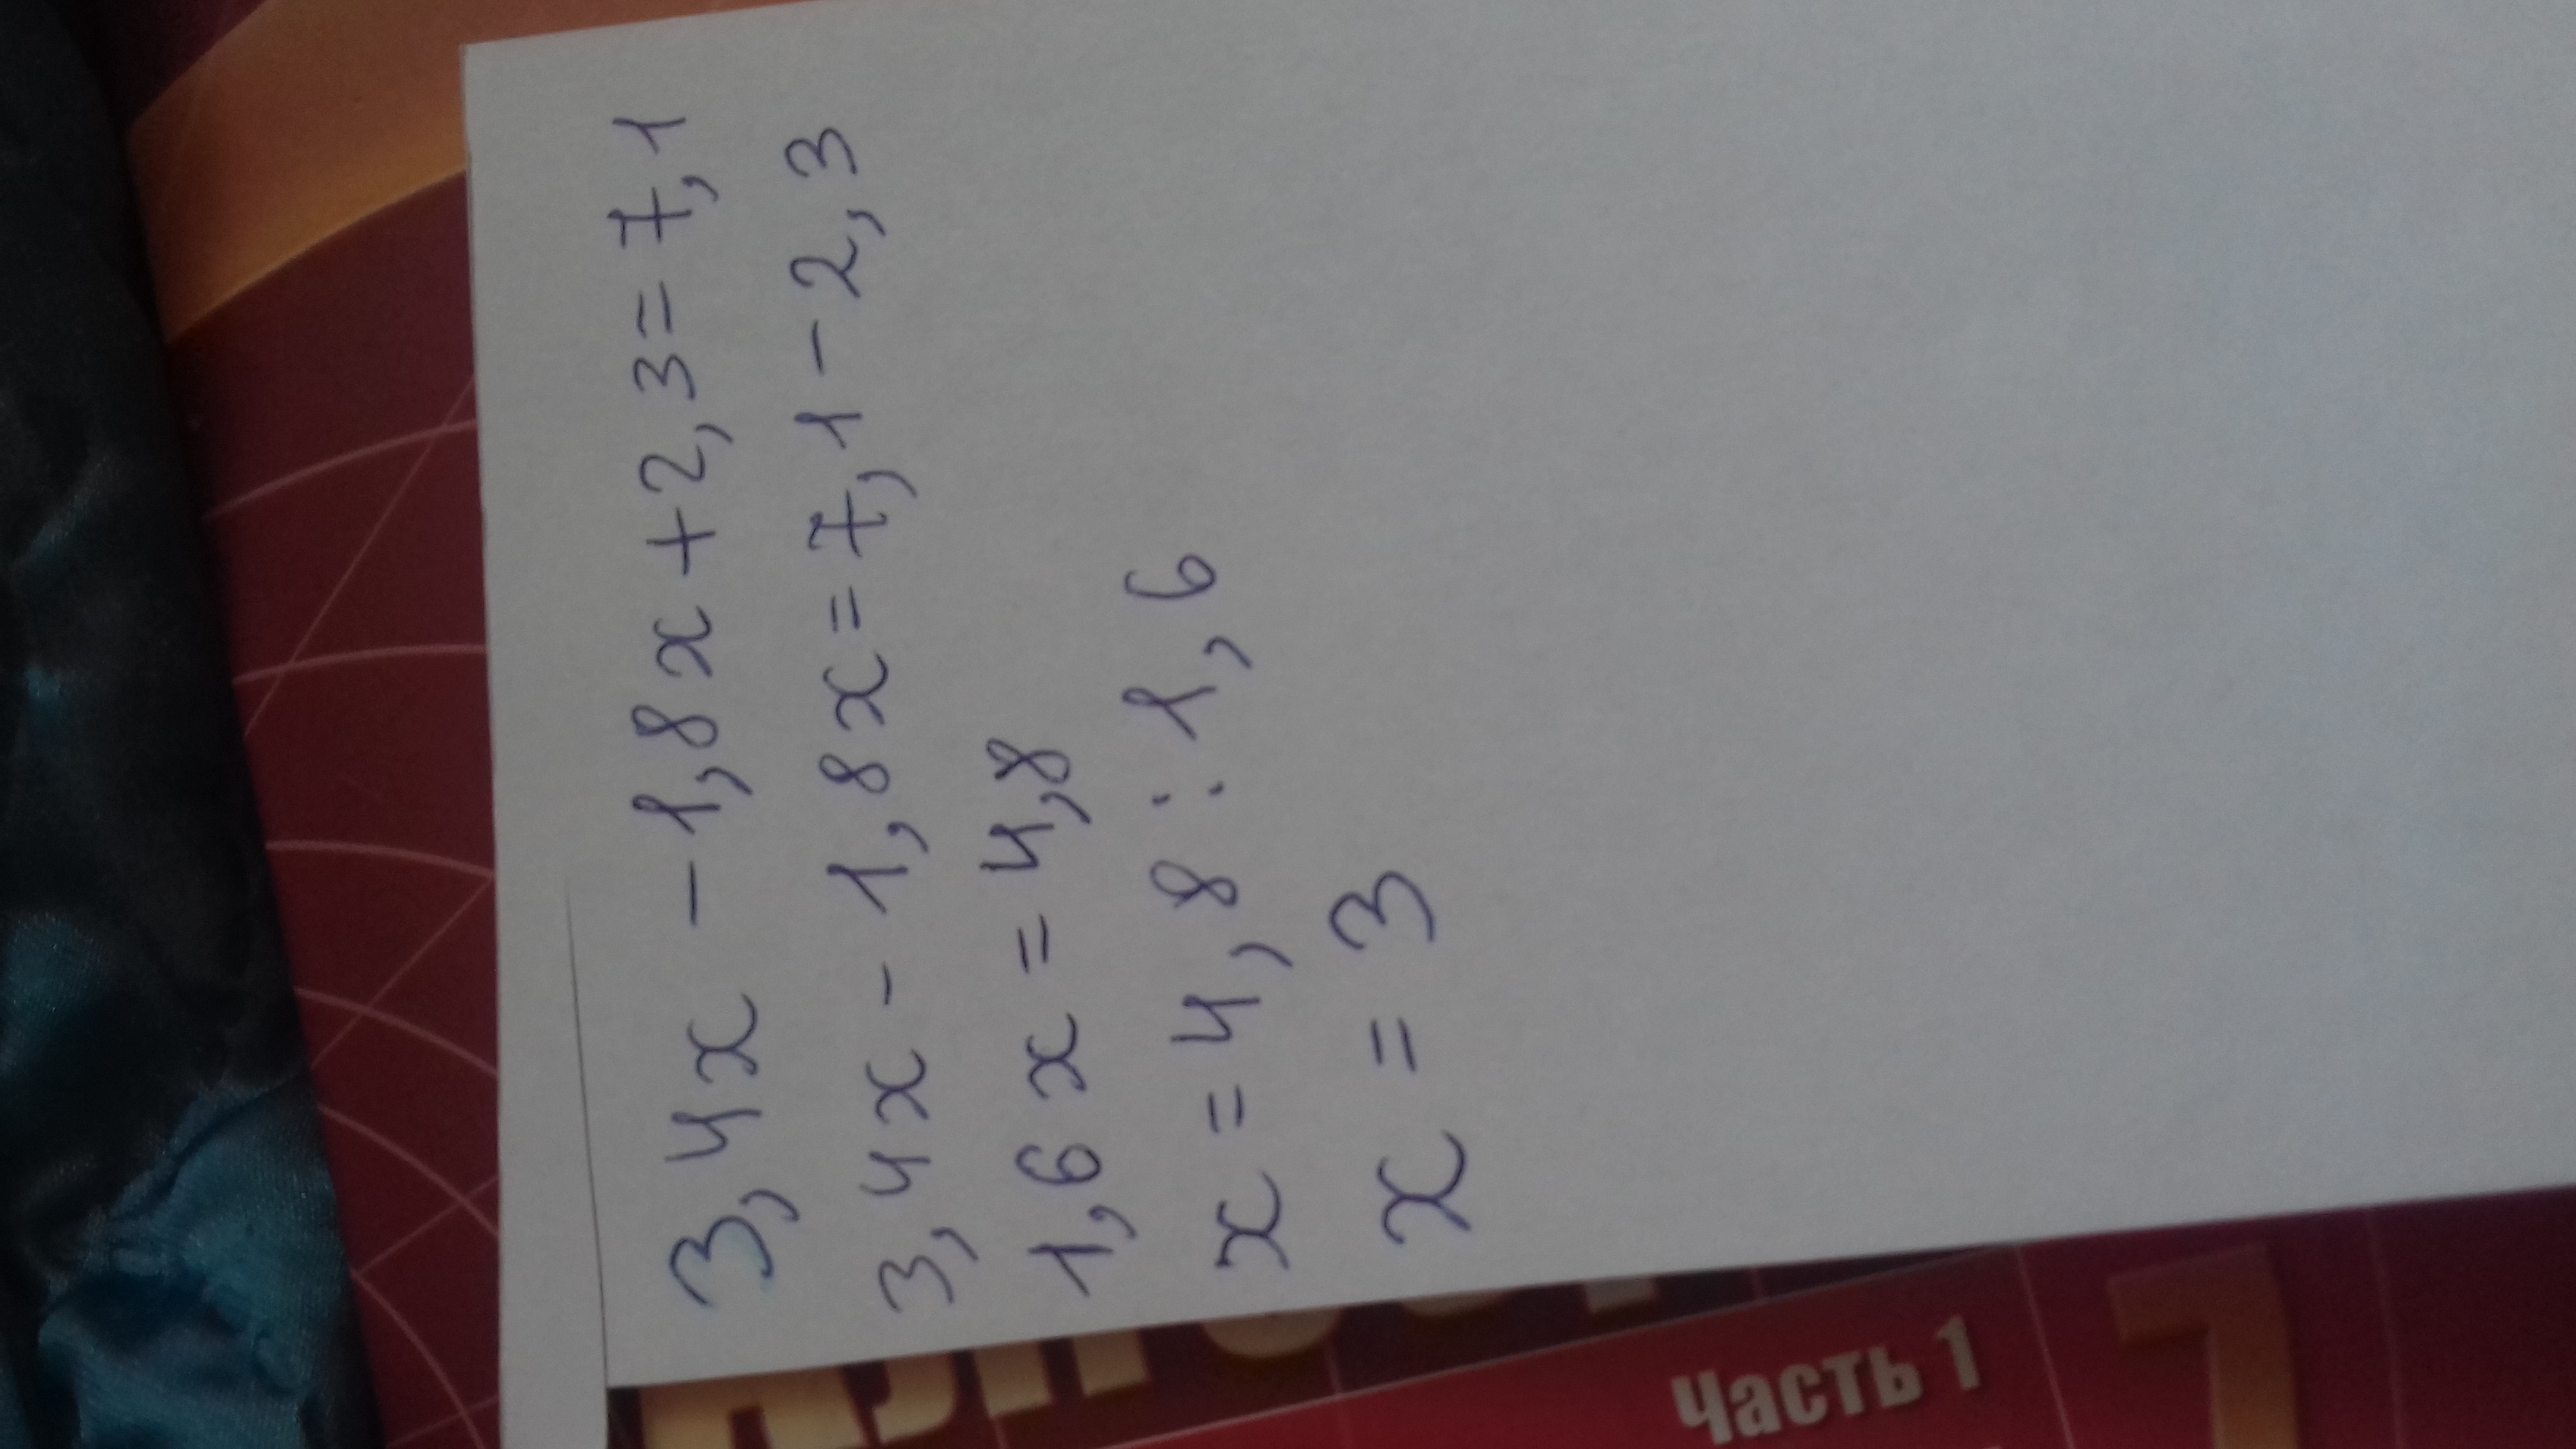 3,4x - 1,8x + 2,3 = 7,1
3,4x - 1,8x = 7,1 - 2,3
1,6x = 4,8
x = 4,8 : 1,6
x = 3
Часть 1
7